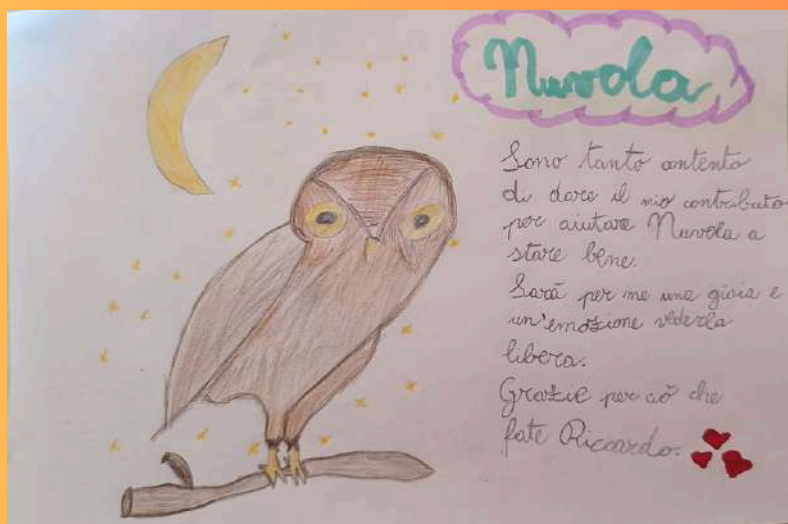 Nuvola
Sono tanto contento
di dare il mio contributo
per aiutare Nuvola a
stare bene.
Sarà per me una gioia e
un'emozione vederla
libera.
Grazie per ciò che
fate Riccardo.